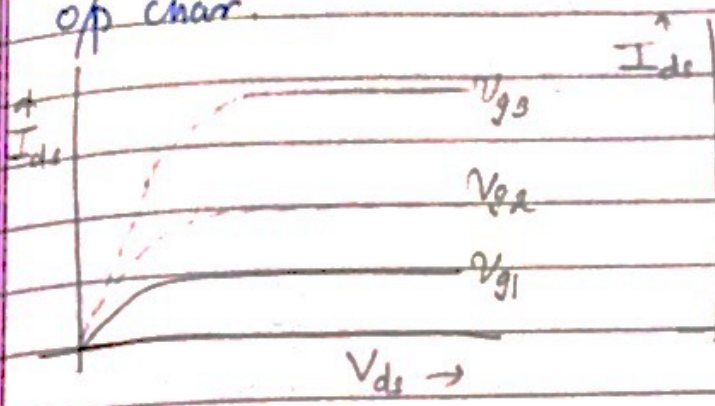 o/p char.
Ids
Ids
Vg3
Vg2
Vg1
Vds →